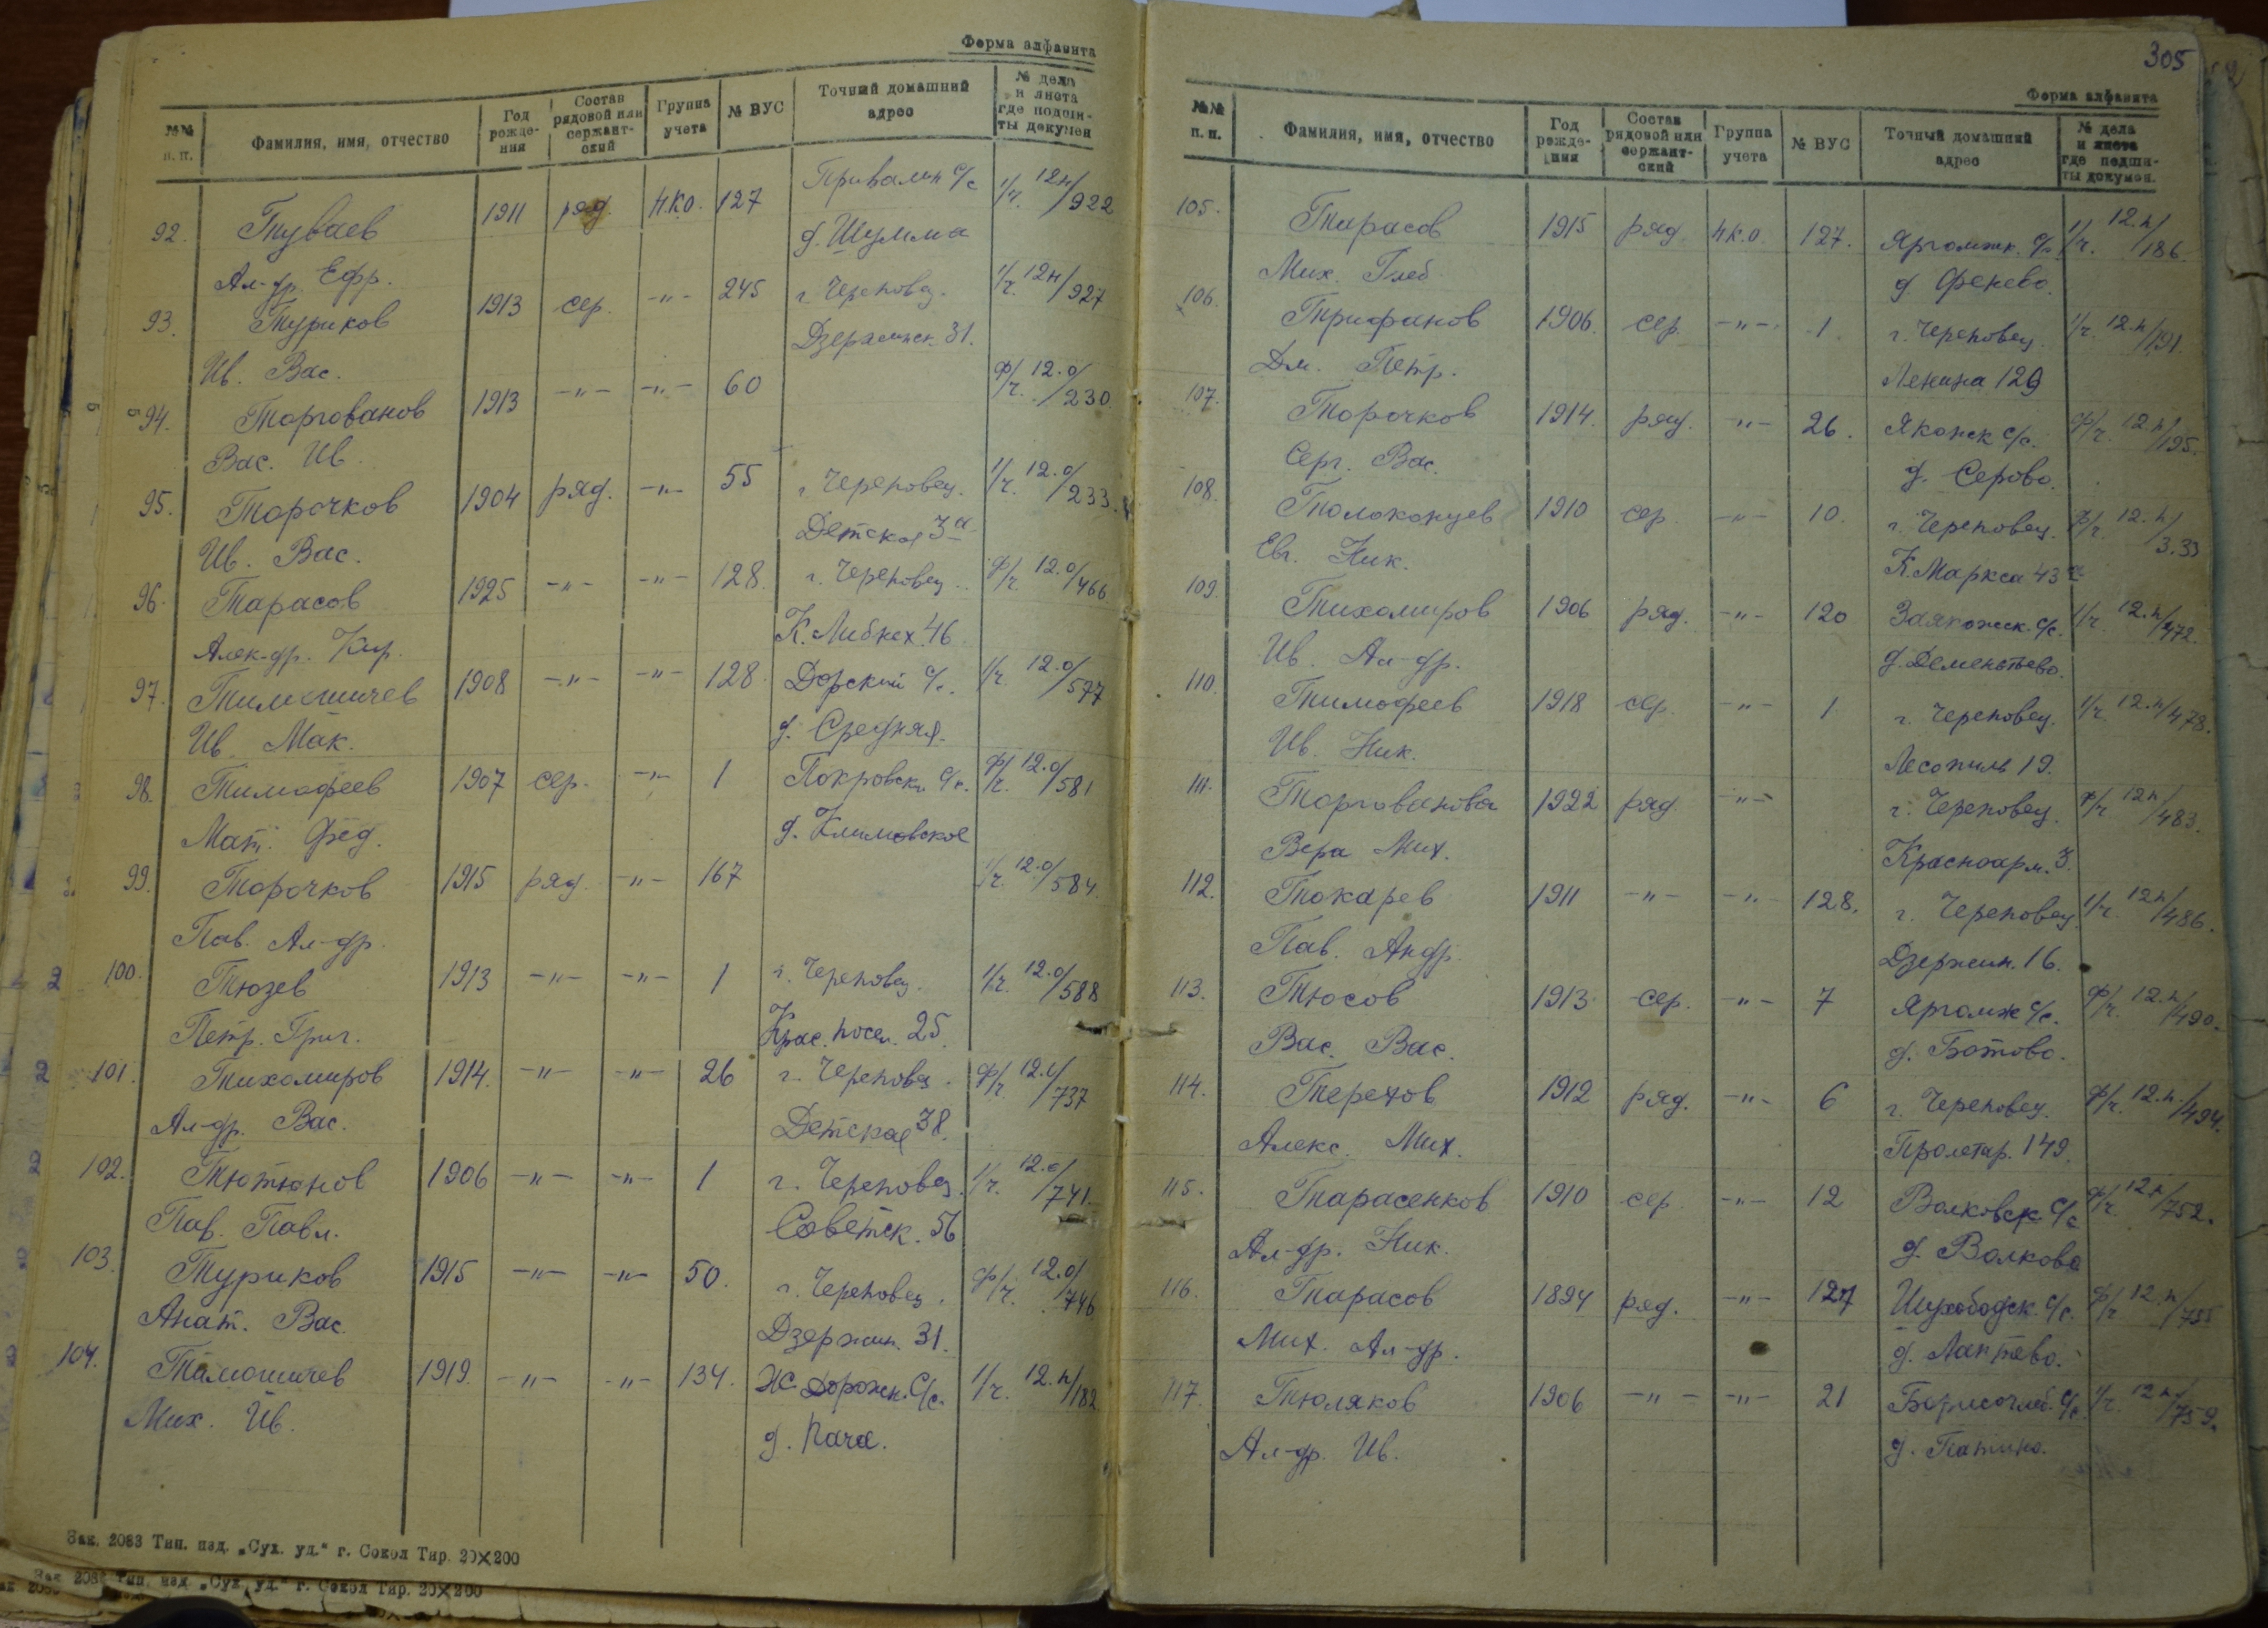 Форма алфавита
№№ п. п. Фамилия, имя, отчество Год рожде-ния Состав рядовой или сержант-ский Группа учета № ВУС Точный домашний адрес № дела и листа где подши-ты докумен
92. Туваев 1911 ряд. н.к.о. 127 Привалин с/с 1/ч. 12н/922
Ал-др. Ефр. д. Шулма
93. Туриков 1913 сер. -"- 245 г. Череповец. 1/ч. 12н/927
Ив. Вас. Дзержинск. 31.
94. Торгованов 1913 -"- -"- 60 ф/ч. 12.о/230
Вас. Ив.
95. Торочков 1904 ряд. -"- 55 г. Череповец. 1/ч. 12.о/233.
Ив. Вас. Детская 3а
96. Тарасов 1925 -"- -"- 128. г. Череповец. ф/ч. 12.о/466
Алек-др. Кир. К. Либкнех. 46
97. Тимошичев 1908 -"- -"- 128. Дорский с/с. 1/ч. 12.о/577
Ив. Мак. д. Средняя.
98. Тимофеев 1907 сер. -"- 1 Покровск. с/с. ф/ч. 12.о/581
Мат. Фед. д. Климовское
99. Торочков 1915 ряд. -"- 167 1/ч. 12.о/584.
Пав. Ал-др.
100. Тюзев 1913 -"- -"- 1 г. Череповец. 1/ч. 12.о/588
Петр. Григ. Крас. посел. 25.
101. Тихомиров 1914. -"- -"- 26 г. Череповец. ф/ч. 12.о/737
Ал-др. Вас. Детская 38.
102. Тютюнов 1906 -"- -"- 1 г. Череповец. 1/ч. 12.о/741.
Пав. Павл. Советск. 56
103. Туриков 1915 -"- -"- 50. г. Череповец. ф/ч. 12.о/746
Анат. Вас. Дзержин. 31.
104. Тимошичев 1919. -"- -"- 134. Ж. Дорожн. с/с. 1/ч. 12.п/182
Мих. Ив. д. Пача.
Зак. 2083 Тип. изд. „Сух. уд." г. Сокол Тир. 20×200
Зак. 2083 Тип. изд. „Сух. уд." г. Сокол Тир. 20×200
305
Форма алфавита
№№ п. п. Фамилия, имя, отчество Год рожде-ния Состав рядовой или сержант-ский Группа учета № ВУС Точный домашний адрес № дела и листа где подши-ты докумен.
105. Тарасов 1915 ряд. н.к.о. 127. Яргомжк. с/с. 1/ч. 12.п/186.
Мих. Глеб. д. Фенево.
106. Трифанов 1906. сер. -"- 1. г. Череповец. 1/ч. 12.п/191.
Дм. Петр. Ленина 129
107. Торочков 1914. ряд. -"- 26. Яконск с/с. ф/ч. 12.п/195.
Серг. Вас. д. Серово.
108. Толоконцев 1910 сер. -"- 10. г. Череповец. ф/ч. 12.п/3.33
Евг. Ник. К. Маркса 43
109. Тихомиров 1906 ряд. -"- 120 Заякошск. с/с. 1/ч. 12.п/472.
Ив. Ал-др. д. Дементьево.
110. Тимофеев 1918 сер. -"- 1 г. Череповец. 1/ч. 12.п/478.
Ив. Ник. Лесопиль 19.
111. Торгованова 1922 ряд. -"- г. Череповец. ф/ч 12п/483.
Вера Мих. Красноарм. 3.
112. Токарев 1911 -"- -"- 128. г. Череповец. 1/ч. 12п/486.
Пав. Андр. Дзержин. 16.
113. Тюсов 1913 сер. -"- 7 Яргомж с/с. ф/ч. 12.п/490.
Вас. Вас. д. Ботово.
114. Терехов 1912 ряд. -"- 6 г. Череповец. ф/ч. 12.п./494.
Алекс. Мих. Пролетар. 149.
115. Тарасенков 1910 сер. -"- 12 Волковск с/с ф/ч. 12п/752.
Ал-др. Ник. д. Волково
116. Тарасов 1894 ряд. -"- 127 Шухободск. с/с. ф/ч 12.п/755
Мих. Ал-др. д. Лаптево.
117. Тюляков 1906 -"- -"- 21 Борисоглеб. с/с. 1/ч. 12п/759.
Ал-др. Ив. д. Патино.